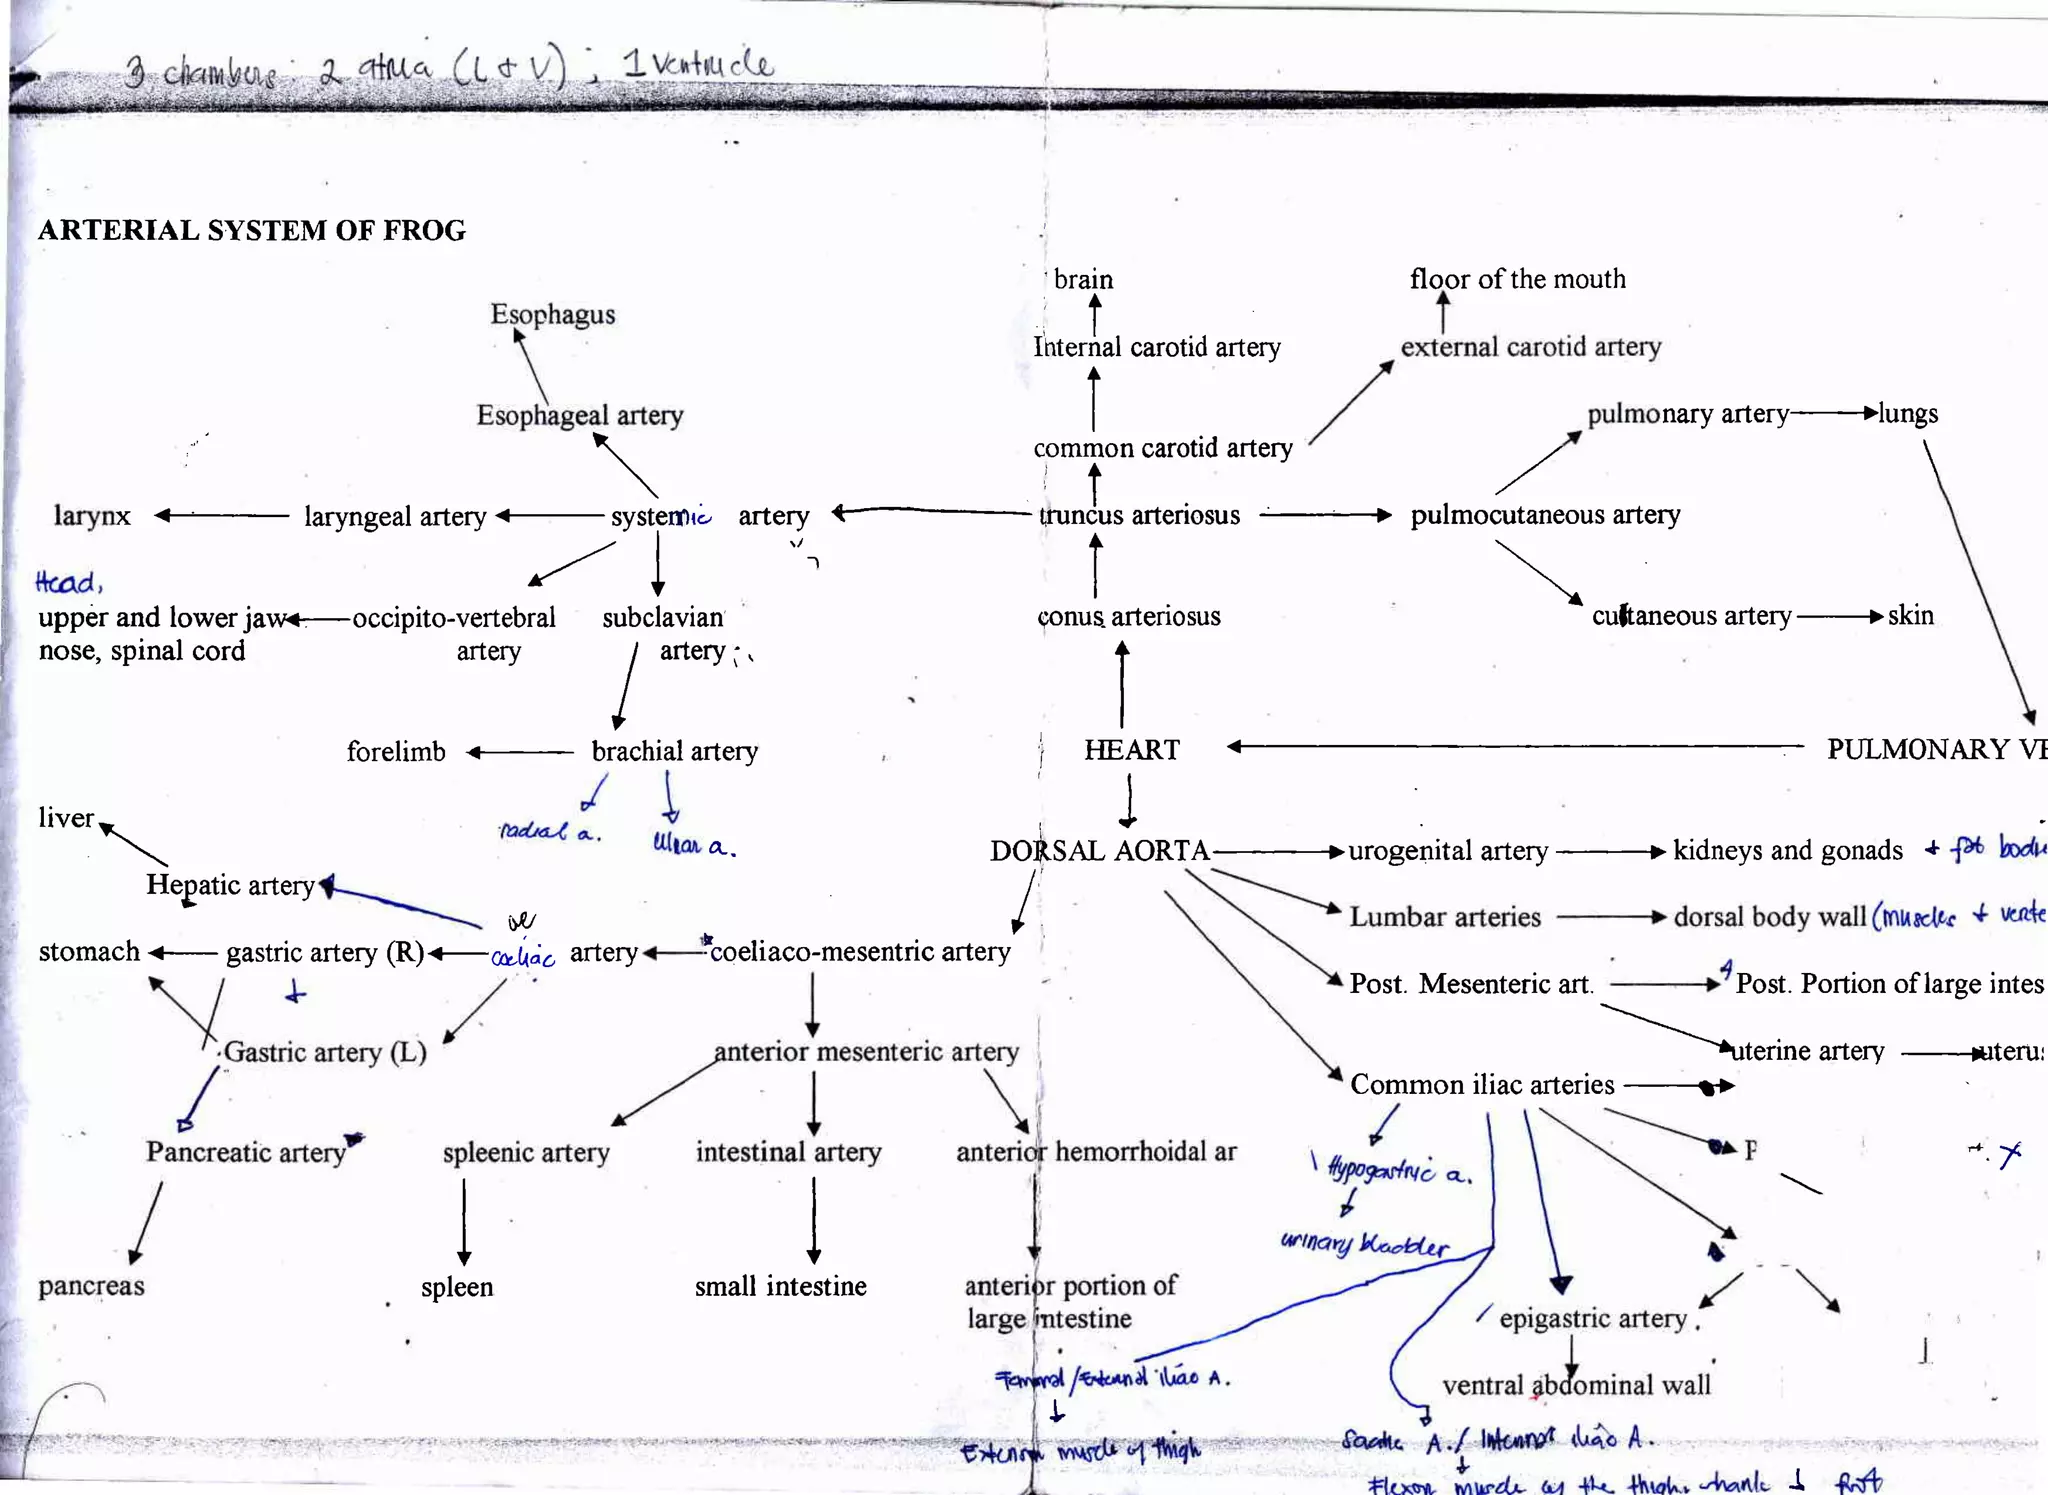 3 chambers: 2 atria (L + V) ; 1 ventricle
ARTERIAL SYSTEM OF FROG
brain
floor of the mouth
Esophagus
Internal carotid artery
external carotid artery
Esophageal artery
pulmonary artery
lungs
common carotid artery
larynx
laryngeal artery
systemic artery
truncus arteriosus
pulmocutaneous artery
Head,
upper and lower jaw
nose, spinal cord
occipito-vertebral
artery
subclavian
artery
conus arteriosus
cutaneous artery
skin
forelimb
brachial artery
HEART
PULMONARY VE
radial a.
Ulnar a.
liver
DORSAL AORTA
urogenital artery
kidneys and gonads + fat body
Hepatic artery
Lumbar arteries
dorsal body wall (muscles + verte
stomach
gastric artery (R)
coeliac artery
coeliaco-mesentric artery
Post. Mesenteric art.
Post. Portion of large intes
Gastric artery (L)
anterior mesenteric artery
uterine artery
uterus
Common iliac arteries
Pancreatic artery
spleenic artery
intestinal artery
anterior hemorrhoidal ar
Hypogastric a.
urinary bladder
pancreas
spleen
small intestine
anterior portion of
large intestine
epigastric artery
ventral abdominal wall
Femoral / External iliac A.
Extensor muscle of thigh
Sciatic A. / Internal iliac A.
Flexor muscle of the thigh, shank & foot